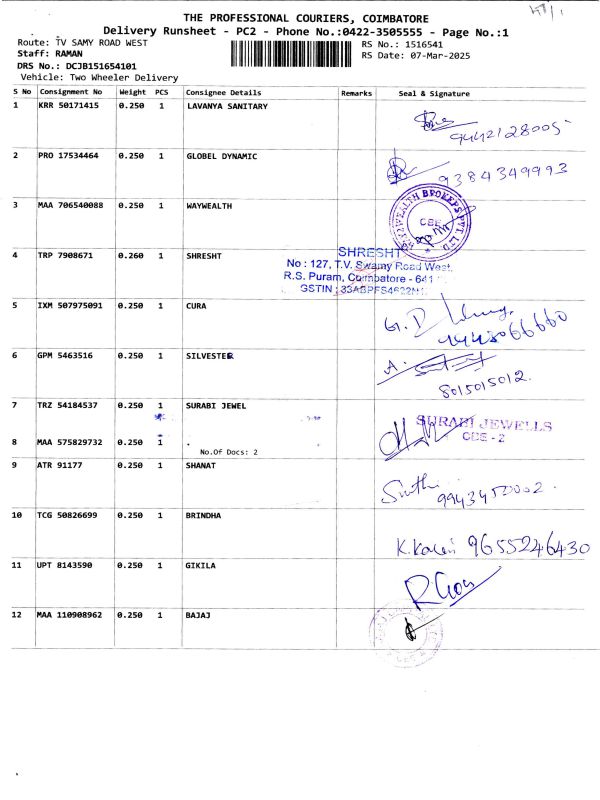 THE PROFESSIONAL COURIERS, COIMBATORE
Delivery Runsheet - PC2 - Phone No.:0422-3505555 - Page No.:1
Route: TV SAMY ROAD WEST
RS No.: 1516541
Staff: RAMAN
RS Date: 07-Mar-2025
DRS No.: DCJB151654101
Vehicle: Two Wheeler Delivery
S No Consignment No Weight PCS Consignee Details Remarks Seal & Signature
1 KRR 50171415 0.250 1 LAVANYA SANITARY
9442128005
2 PRO 17534464 0.250 1 GLOBEL DYNAMIC
9384349993
3 MAA 706540088 0.250 1 WAYWEALTH
WAY2WEALTH BROKERS PVT. LTD
CBE
4 TRP 7908671 0.260 1 SHRESHT
SHRESHT
No : 127, T.V. Swamy Road West,
R.S. Puram, Coimbatore - 641
GSTIN : 33ABPFS4622N1
5 IXM 507975091 0.250 1 CURA
6 GPM 5463516 0.250 1 SILVESTER
A.
8015015012.
7 TRZ 54184537 0.250 1 SURABI JEWEL
SURABI JEWELLS
CBE - 2
8 MAA 575829732 0.250 1 .
No.Of Docs: 2
9 ATR 91177 0.250 1 SHANAT
10 TCG 50826699 0.250 1 BRINDHA
9655246430
11 UPT 8143590 0.250 1 GIKILA
12 MAA 110908962 0.250 1 BAJAJ